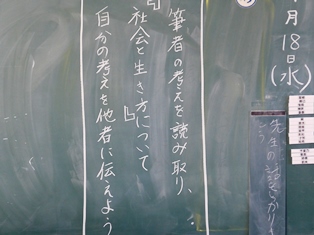 月18日(水)
筆者の考えを読み取り、
『社会と生き方について』
自分の考えを他者に伝えよう